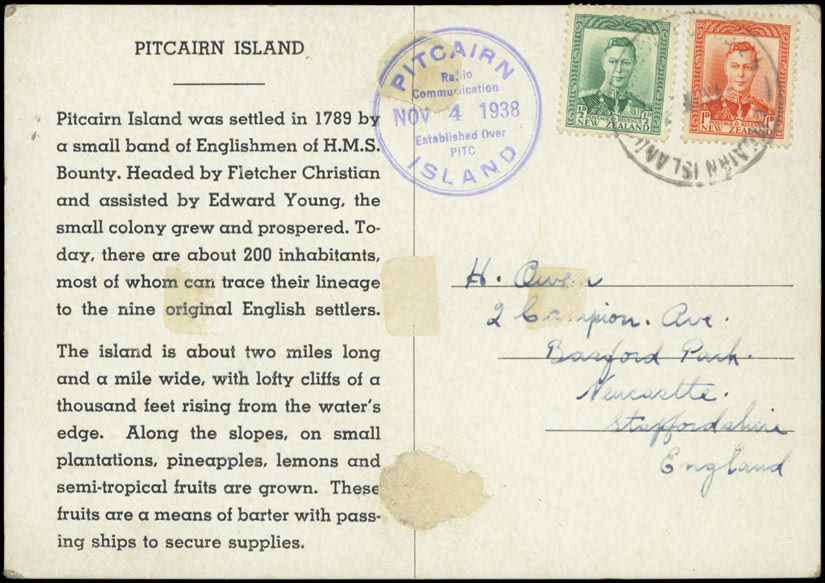 PITCAIRN ISLAND
Pitcairn Island was settled in 1789 by
a small band of Englishmen of H.M.S.
Bounty. Headed by Fletcher Christian
and assisted by Edward Young, the
small colony grew and prospered. To-
day, there are about 200 inhabitants,
most of whom can trace their lineage
to the nine original English settlers.
The island is about two miles long
and a mile wide, with lofty cliffs of a
thousand feet rising from the water's
edge. Along the slopes, on small
plantations, pineapples, lemons and
semi-tropical fruits are grown. These
fruits are a means of barter with pass-
ing ships to secure supplies.
PITCAIRN
Radio
Communication
NOV 4 1938
Established Over
PITC
ISLAND
½D POSTAGE & REVENUE ½D
NEW ZEALAND
1D POSTAGE & REVENUE 1D
NEW ZEALAND
CAIRN ISLAND
H. Owen
2 Campion. Ave.
Basford Park.
Newcastle.
Staffordshire
England